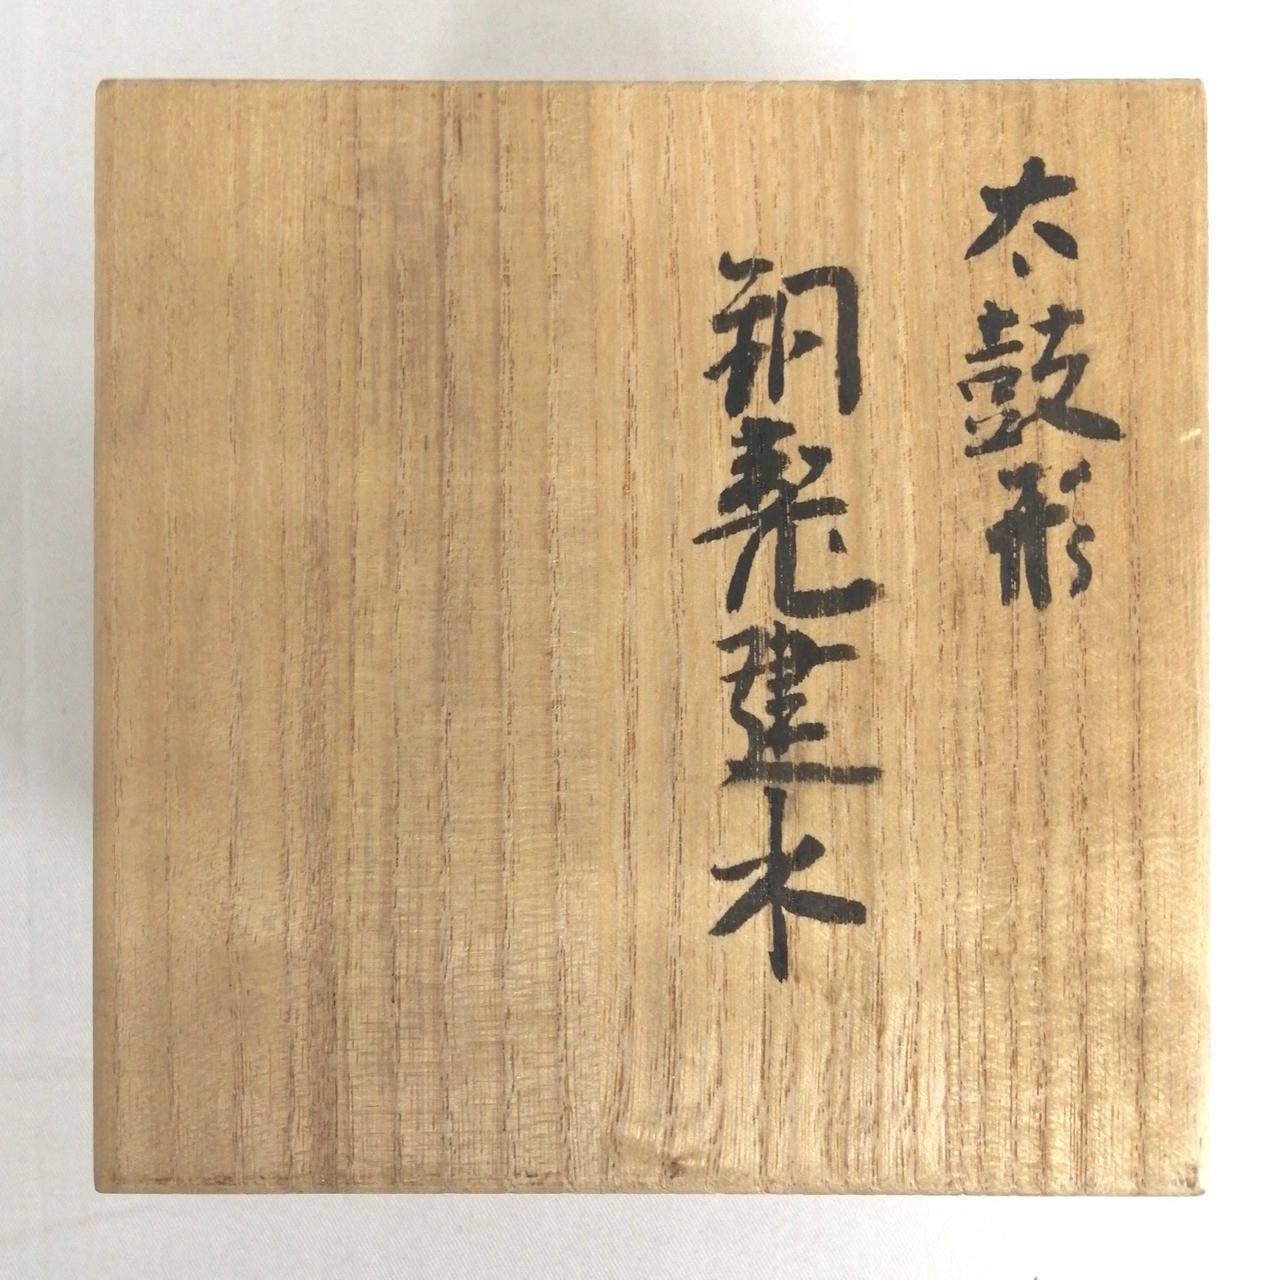 太鼓形
銅製建水